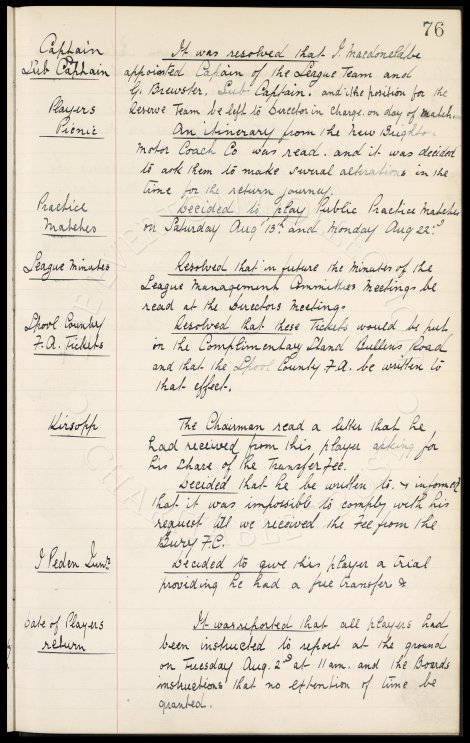 76
Captain
Sub Captain
It was resolved that J. Macdonald be
appointed Capain of the League Team and
G. Brewster, Sub Captain. and the position for the
Reserve Team be left to Director in Charge. on day of match.
Players
Picnic
An itinerary from the New Brighton
Motor Coach Co was read. and it was decided
to ask them to make several alterations in the
time for the return journey.
Practice
Matches
Decided to play Public Practice Matches
on Saturday Aug 13th and Monday Aug 22nd
League Minutes
Resolved that in future the Minutes of the
League Management Committees Meetings be
read at the Directors Meetings
Lpool County
F.A. Tickets
Resolved that these Tickets would be put
on the Complimentary Stand Bullens Road
and that the Lpool County F.A. be written to
that effect.
Kirsopp
The Chairman read a letter that he
had received from this player asking for
his share of the Transfer Fee.
Decided that he be written to. & informed
that it was impossible to comply with his
request till we received the Fee from the
Bury F.C.
J Peden Junr
Decided to give this player a trial
providing he had a free transfer &
Date of Players
return
It was reported that all players had
been instructed to report at the ground
on Tuesday Aug. 2nd at 11 am. and the Boards
instructions that no extention of time be
granted.